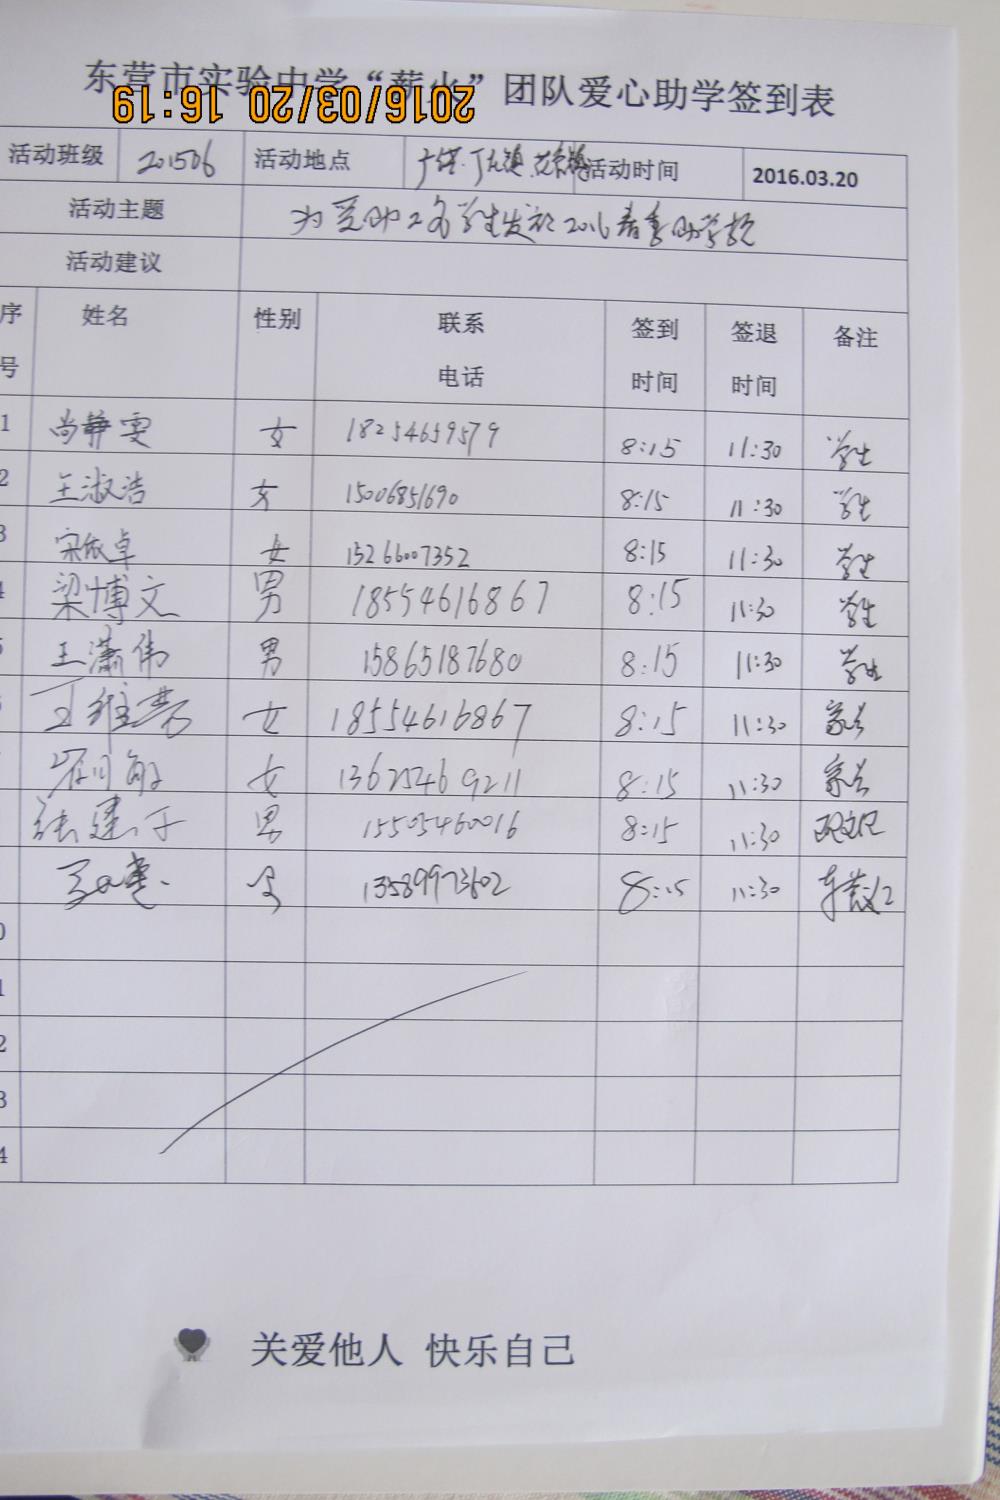 东营市实验中学“薪火”团队爱心助学签到表
2016/03/20 16:19
活动班级 201506 活动地点 广饶.丁庄镇 活动时间 2016.03.20
活动主题 为受助2名学生发放2016春季助学款
活动建议
序号 姓名 性别 联系电话 签到时间 签退时间 备注
1 尚静雯 女 18254659579 8:15 11:30 学生
2 王淑浩 女 15006851690 8:15 11:30 学生
3 宋依卓 女 15266007352 8:15 11:30 学生
4 梁博文 男 18554616867 8:15 11:30 学生
5 王潇伟 男 15865187680 8:15 11:30 学生
女 18554616867 8:15 11:30 家长
敏 女 13625469211 8:15 11:30 家长
张建 男 15505460016 8:15 11:30
13589973602 8:15 11:30
0
1
2
3
4
关爱他人 快乐自己